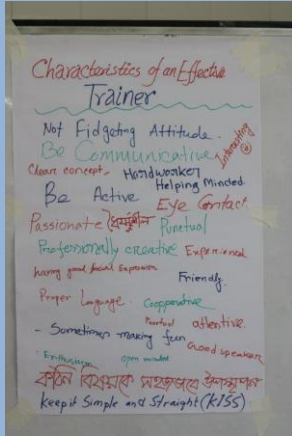 Characteristics of an Effective
Trainer
Not Fidgeting Attitude.
Be Communicative
Interesting
Clear concept. Hardworker
Helping Minded.
Be Active Eye Contact.
Passionate ধৈর্য্যশীল Punctual
Professionally creative Experienced
having good facial Expression
Friendly.
Proper Language. Cooperative
Punctual attentive.
- Sometimes making fun
Good speaker
Enthusiasm open minded
কঠিন বিষয়কে সহজভাবে উপস্থাপন
keep it Simple and Straight (KISS)